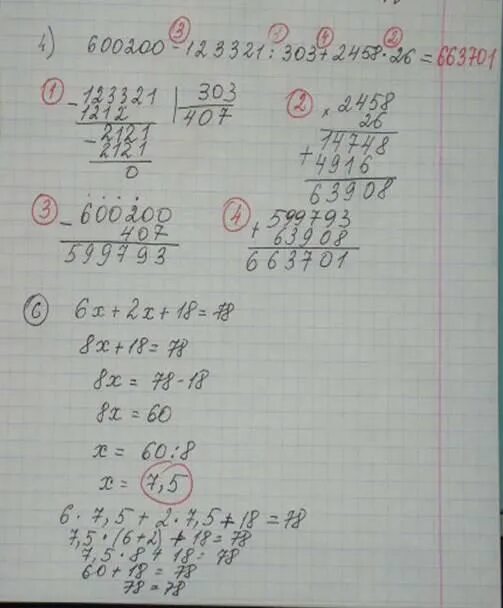 4) 600200 - 123321 : 303 + 2458 · 26 = 663701
3 1 4 2
1
- 123321 | 303
1212 407
- 2121
2121
0
2
× 2458
26
+ 14748
4916
63908
3
- 600200
407
599793
4
+ 599793
63908
663701
6 6x + 2x + 18 = 78
8x + 18 = 78
8x = 78 - 18
8x = 60
x = 60 : 8
x = 7,5
6 · 7,5 + 2 · 7,5 + 18 = 78
7,5 · (6+2) + 18 = 78
7,5 · 8 + 18 = 78
60 + 18 = 78
78 = 78